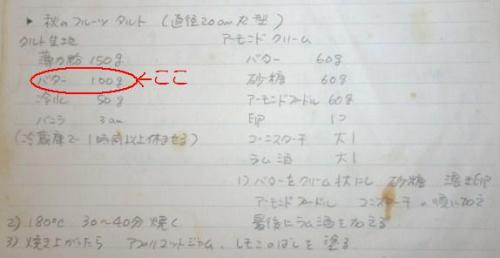 ▶ 秋のフルーツタルト (直径20cm丸型)
タルト生地
薄力粉 150g
バター 100g ←ここ
冷水 50g
バニラ 3cm
(冷蔵庫で1時間以上休ませる)
アーモンドクリーム
バター 60g
砂糖 60g
アーモンドプードル 60g
卵 1コ
コーンスターチ 大1
ラム酒 大1
1) バターをクリーム状にし 砂糖 溶き卵
アーモンドプードル コンスターチの順に加え
最後にラム酒を加える
2) 180℃ 30〜40分 焼く
3) 焼き上がったら アプリコットジャム、 を塗る